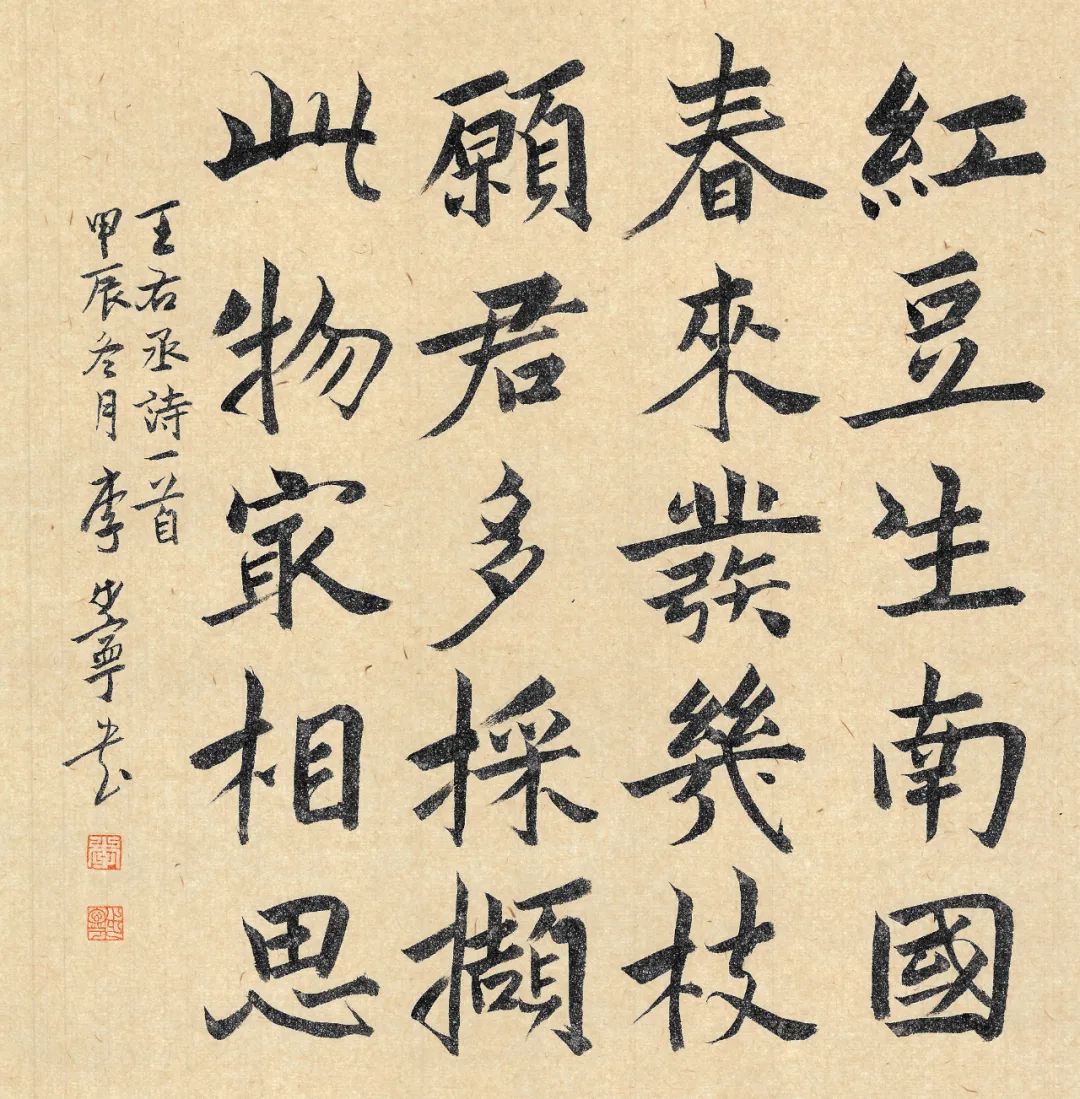 紅豆生南國
春來發幾枝
願君多採擷
此物㝡相思
王右丞詩一首
甲辰冬月李寧書